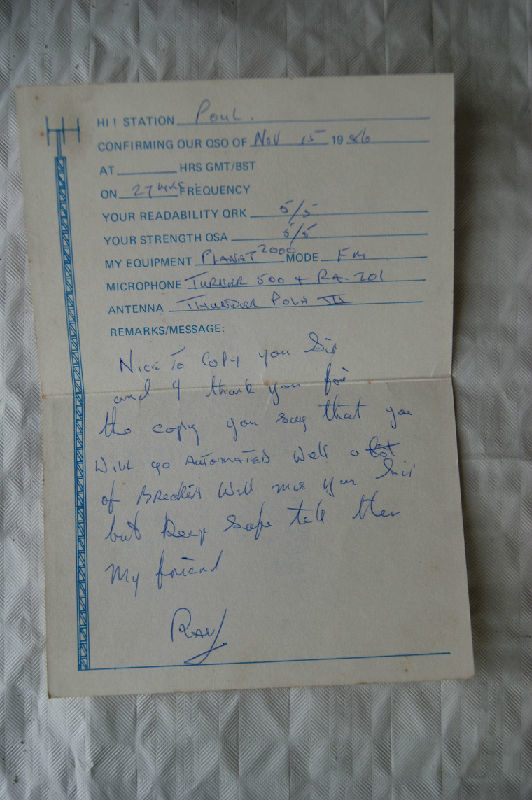 HI! STATION Paul.
CONFIRMING OUR QSO OF Nov 15 1986
AT HRS GMT/BST
ON 27 MHz FREQUENCY
YOUR READABILITY QRK 5/5
YOUR STRENGTH QSA 5/5
MY EQUIPMENT PLANET 2000 MODE FM
MICROPHONE TURNER 500 + RA-201
ANTENNA THUNDER POLE III
REMARKS/MESSAGE:
Nice To Copy you Sir
and I thank you for
the copy you say that you
Will go AUTOMATED Well a lot
of BREAKERS Will miss you Sir
but Keep Safe till then
My friend
Ray